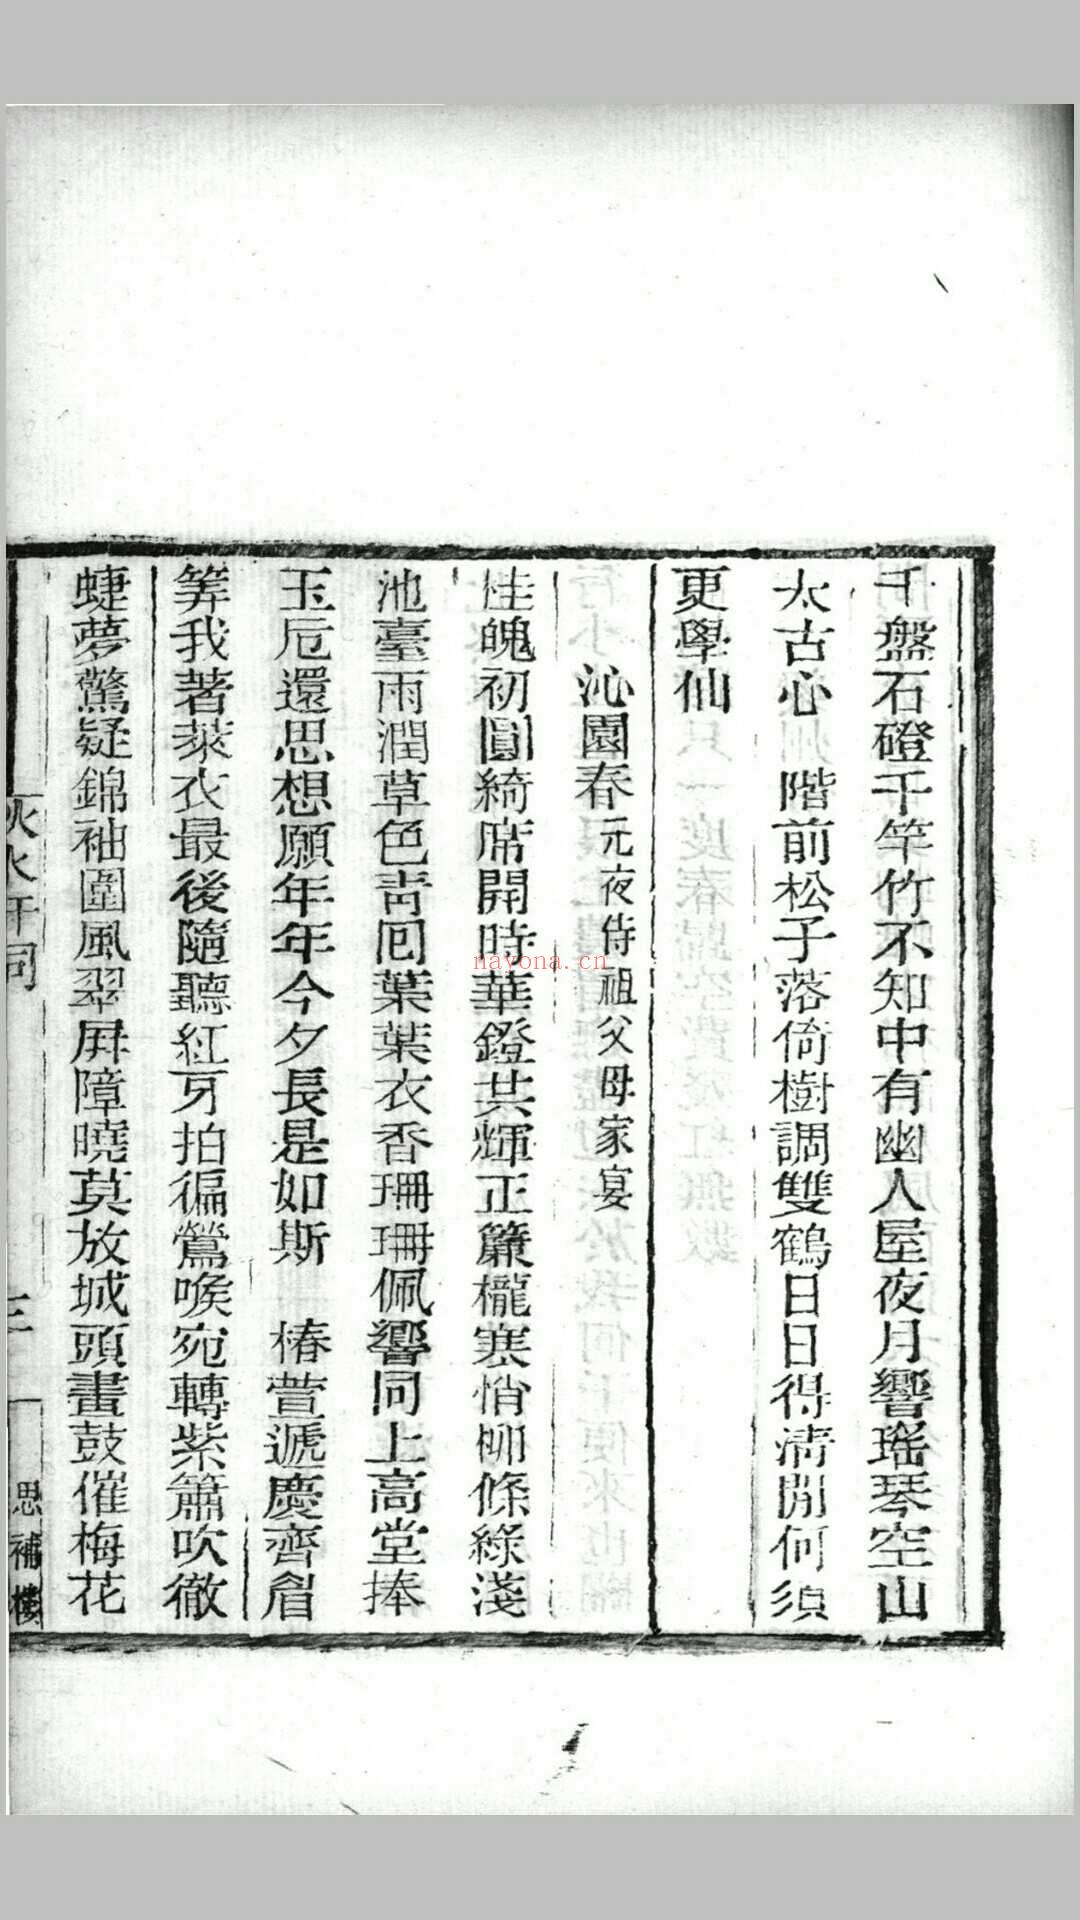 千盤石磴千竿竹不知中有幽人屋夜月響瑤琴空山
太古心　階前松子落倚樹調雙鶴日日得清閒何須
更學仙
沁園春元夜侍祖父母家宴
桂魄初圓綺席開時華鐙共輝正簾櫳寒悄柳條綠淺
池臺雨潤草色靑囘葉葉衣香珊珊佩響同上高堂捧
玉卮還思想願年年今夕長是如斯　椿萱遞慶齊眉
筭我著萊衣最後隨聽紅牙拍徧鶯喉宛轉紫簫吹徹
蜨夢驚疑錦袖圍風翠屛障曉莫放城頭畫鼓催梅花
三
思補樓
nayona.cn